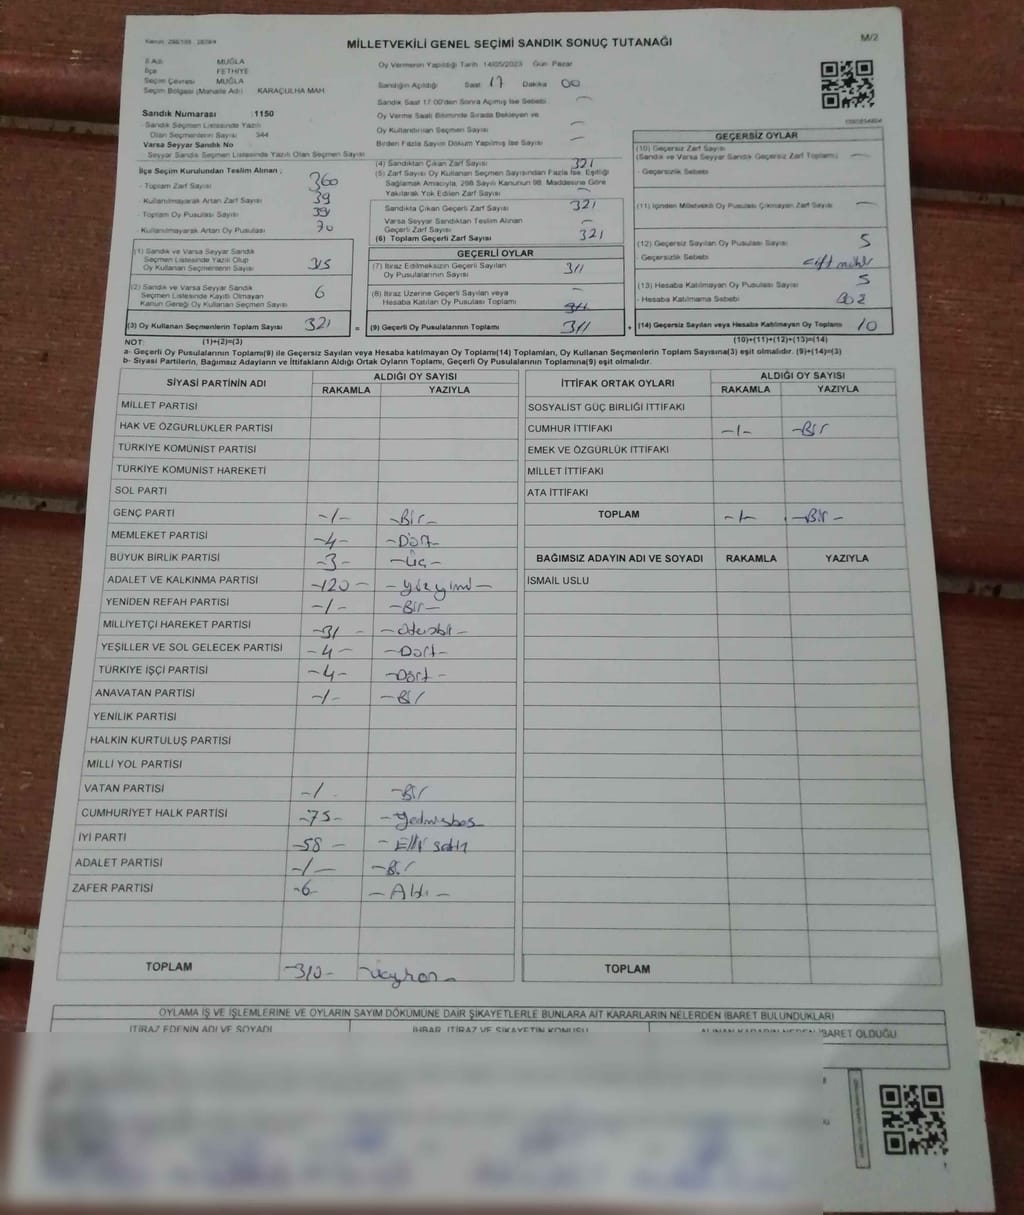 MİLLETVEKİLİ GENEL SEÇİMİ SANDIK SONUÇ TUTANAĞI
M/2
İl Adı MUĞLA
İlçe FETHİYE
Seçim Çevresi MUĞLA
Seçim Bölgesi (Mahalle Adı) KARAÇULHA MAH
Sandık Numarası :1150
Sandık Seçmen Listesinde Yazılı
Olan Seçmenlerin Sayısı 344
Varsa Seyyar Sandık No
Seyyar Sandık Seçmen Listesinde Yazılı Olan Seçmen Sayısı
İlçe Seçim Kurulundan Teslim Alınan ;
- Toplam Zarf Sayısı 360
- Kullanılmayarak Artan Zarf Sayısı 39
- Toplam Oy Pusulası Sayısı
- Kullanılmayarak Artan Oy Pusulası 70
(1) Sandık ve Varsa Seyyar Sandık
Seçmen Listesinde Yazılı Olup
Oy Kullanan Seçmenlerin Sayısı 315
(2) Sandık ve Varsa Seyyar Sandık
Seçmen Listesinde Kayıtlı Olmayan
Kanun Gereği Oy Kullanan Seçmen Sayısı 6
(3) Oy Kullanan Seçmenlerin Toplam Sayısı 321 =
Oy Vermenin Yapıldığı Tarih 14/05/2023 Gün Pazar
Sandığın Açıldığı Saat 17 Dakika 00
Sandık Saat 17.00'den Sonra Açılmış İse Sebebi
Oy Verme Saati Bitiminde Sırada Bekleyen ve
Oy Kullandırılan Seçmen Sayısı
Birden Fazla Sayım Döküm Yapılmış İse Sayısı
(4) Sandıktan Çıkan Zarf Sayısı 321
(5) Zarf Sayısı Oy Kullanan Seçmen Sayısından Fazla İse, Eşitliği
Sağlamak Amacıyla, 298 Sayılı Kanunun 98. Maddesine Göre
Yakılarak Yok Edilen Zarf Sayısı
Sandıkta Çıkan Geçerli Zarf Sayısı 321
Varsa Seyyar Sandıktan Teslim Alınan
Geçerli Zarf Sayısı
(6) Toplam Geçerli Zarf Sayısı 321
GEÇERLİ OYLAR
(7) İtiraz Edilmeksizin Geçerli Sayılan
Oy Pusulalarının Sayısı 311
(8) İtiraz Üzerine Geçerli Sayılan veya
Hesaba Katılan Oy Pusulası Toplamı
(9) Geçerli Oy Pusulalarının Toplamı 311 +
GEÇERSİZ OYLAR
(10) Geçersiz Zarf Sayısı
(Sandık ve Varsa Seyyar Sandık Geçersiz Zarf Toplamı)
- Geçersizlik Sebebi
(11) İçinden Milletvekili Oy Pusulası Çıkmayan Zarf Sayısı
(12) Geçersiz Sayılan Oy Pusulası Sayısı 5
- Geçersizlik Sebebi çift mühür
(13) Hesaba Katılmayan Oy Pusulası Sayısı 5
- Hesaba Katılmama Sebebi Boş
(14) Geçersiz Sayılan veya Hesaba Katılmayan Oy Toplamı 10
NOT: (1)+(2)=(3) (10)+(11)+(12)+(13)=(14)
a- Geçerli Oy Pusulalarının Toplamı(9) ile Geçersiz Sayılan veya Hesaba katılmayan Oy Toplamı(14) Toplamları, Oy Kullanan Seçmenlerin Toplam Sayısına(3) eşit olmalıdır. (9)+(14)=(3)
b- Siyasi Partilerin, Bağımsız Adayların ve İttifakların Aldığı Ortak Oyların Toplamı, Geçerli Oy Pusulalarının Toplamına(9) eşit olmalıdır.
SİYASİ PARTİNİN ADI ALDIĞI OY SAYISI
RAKAMLA YAZIYLA
MİLLET PARTİSİ
HAK VE ÖZGÜRLÜKLER PARTİSİ
TÜRKİYE KOMÜNİST PARTİSİ
TÜRKİYE KOMÜNİST HAREKETİ
SOL PARTİ
GENÇ PARTİ -1- -Bir-
MEMLEKET PARTİSİ -4- -Dört-
BÜYÜK BİRLİK PARTİSİ -3- -Üç-
ADALET VE KALKINMA PARTİSİ -120- -Yüzyirmi-
YENİDEN REFAH PARTİSİ -1- -Bir-
MİLLİYETÇİ HAREKET PARTİSİ -31- -Otuzbir-
YEŞİLLER VE SOL GELECEK PARTİSİ -4- -Dört-
TÜRKİYE İŞÇİ PARTİSİ -4- -Dört-
ANAVATAN PARTİSİ -1- -Bir
YENİLİK PARTİSİ
HALKIN KURTULUŞ PARTİSİ
MİLLİ YOL PARTİSİ
VATAN PARTİSİ -1- -Bir
CUMHURİYET HALK PARTİSİ -75- -Yetmişbeş
İYİ PARTİ -58- -Elli sekiz
ADALET PARTİSİ -1- -Bir
ZAFER PARTİSİ -6- -Altı-
TOPLAM -310- -üçyüzon-
İTTİFAK ORTAK OYLARI ALDIĞI OY SAYISI
RAKAMLA YAZIYLA
SOSYALİST GÜÇ BİRLİĞİ İTTİFAKI
CUMHUR İTTİFAKI -1- -Bir
EMEK VE ÖZGÜRLÜK İTTİFAKI
MİLLET İTTİFAKI
ATA İTTİFAKI
TOPLAM -1- -Bir-
BAĞIMSIZ ADAYIN ADI VE SOYADI RAKAMLA YAZIYLA
İSMAİL USLU
TOPLAM
OYLAMA İŞ VE İŞLEMLERİNE VE OYLARIN SAYIM DÖKÜMÜNE DAİR ŞİKAYETLERLE BUNLARA AİT KARARLARIN NELERDEN İBARET BULUNDUKLARI
İTİRAZ EDENİN ADI VE SOYADI İHBAR, İTİRAZ VE ŞİKAYETİN KONUSU ALINAN KARARIN NEDEN İBARET OLDUĞU